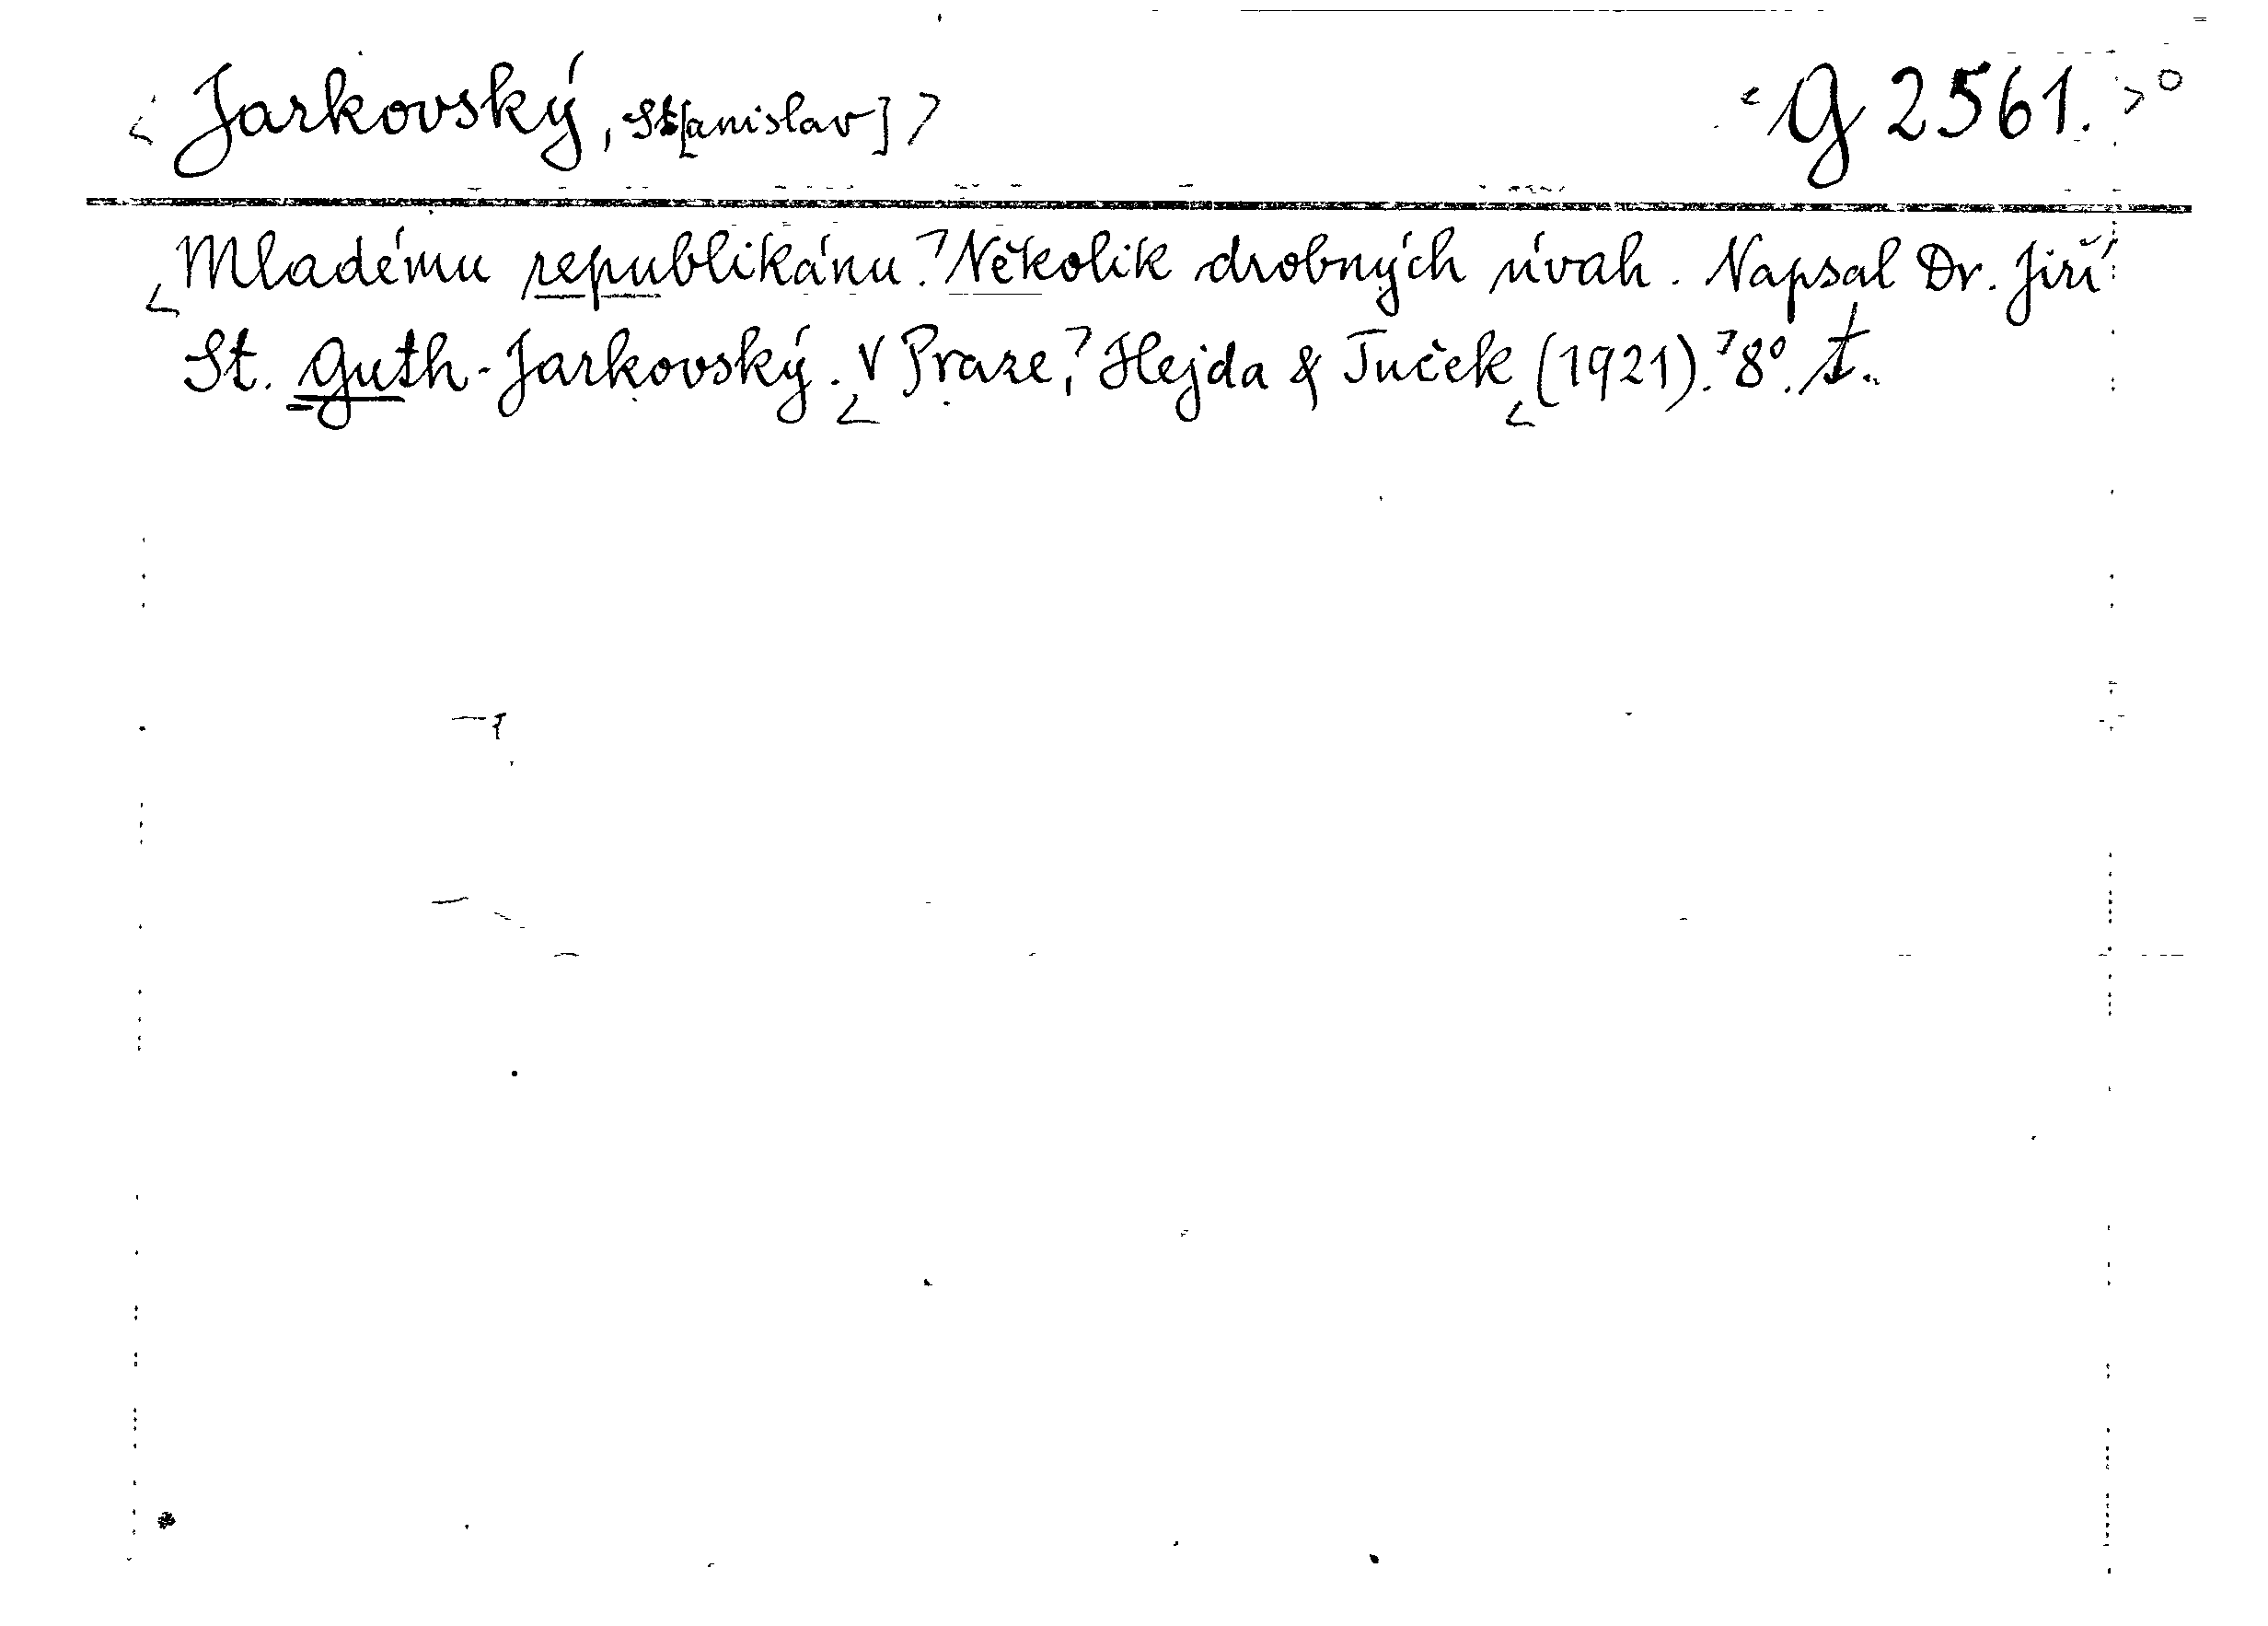 <Jarkovský, St[anislav]> <G 2561.>°
<Mladému republikánu.> Několik drobných úvah. Napsal Dr. Jiří
St. Guth-Jarkovský. <V Praze,> Hejda & Tuček <(1921).> 8°. t.